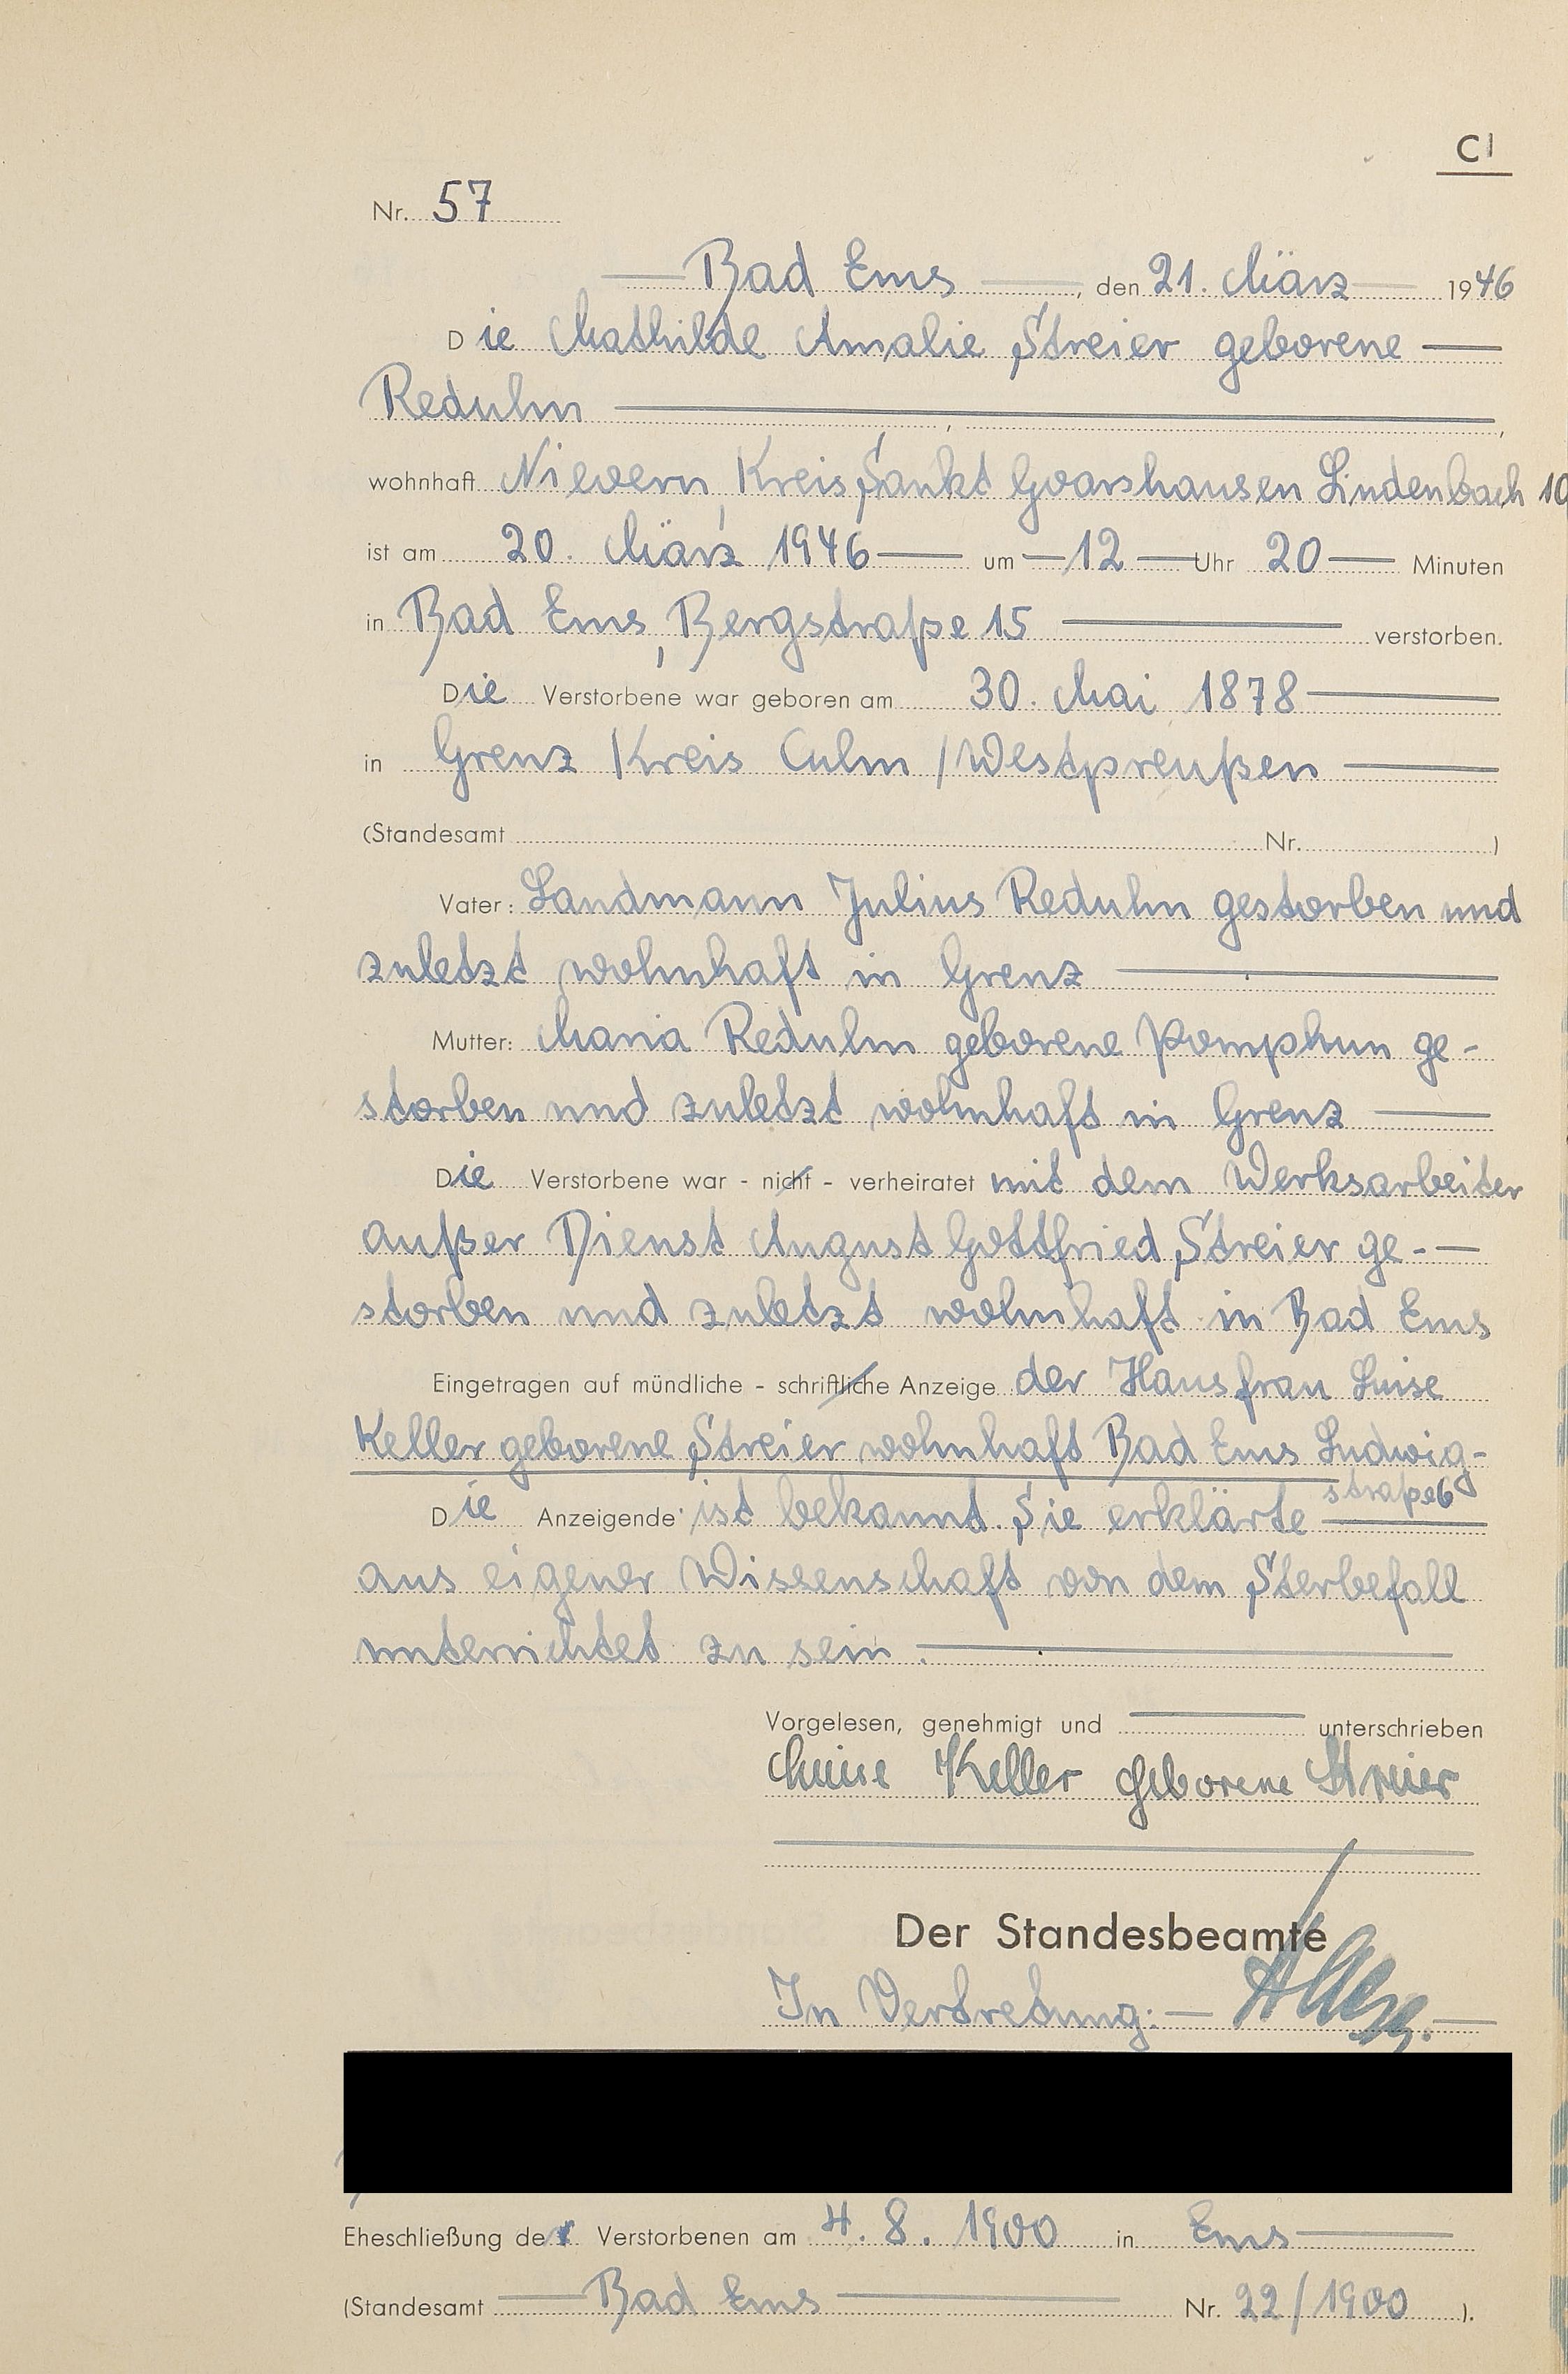 C1
Nr. 57
Bad Ems, den 21. März 1946
Die Mathilde Amalie Streier geborene
Reduhn
wohnhaft Nievern, Kreis Sankt Goarshausen Lindenbach 10
ist am 20. März 1946 um 12 Uhr 20 Minuten
in Bad Ems, Bergstraße 15 verstorben.
Die Verstorbene war geboren am 30. Mai 1878
in Grenz Kreis Culm / Westpreußen
(Standesamt Nr. )
Vater: Landmann Julius Reduhn gestorben und
zuletzt wohnhaft in Grenz
Mutter: Maria Reduhn geborene Pomphun ge-
storben und zuletzt wohnhaft in Grenz
Die Verstorbene war - nicht - verheiratet mit dem Werksarbeiter
außer Dienst August Gottfried Streier ge-
storben und zuletzt wohnhaft in Bad Ems
Eingetragen auf mündliche - schriftliche Anzeige der Hausfrau Luise
Keller geborene Streier wohnhaft Bad Ems Ludwig-
straße 6
Die Anzeigende ist bekannt. Sie erklärte
aus eigener Wissenschaft von dem Sterbefall
unterrichtet zu sein.
Vorgelesen, genehmigt und unterschrieben
Luise Keller geborene Streier
Der Standesbeamte
In Vertretung:
Eheschließung der Verstorbenen am 4. 8. 1900 in Ems
(Standesamt Bad Ems Nr. 22/1900 ).